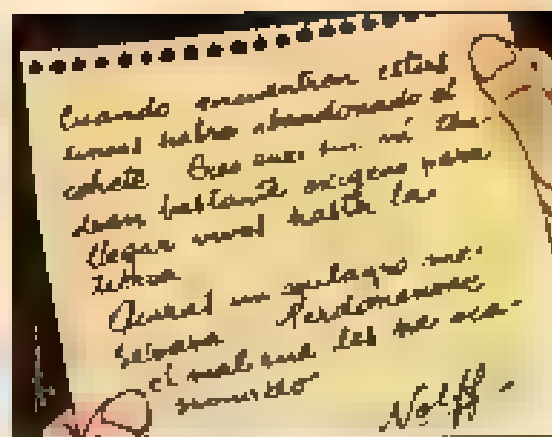 Cuando encuentren estas
lineas habre abandonado el
cohete. Creo que sin mi
dran bastante oxigeno para
llegar hasta la
tierra
un milagro me
Perdonenme
el mal que les he oca-
sionado
Wolff